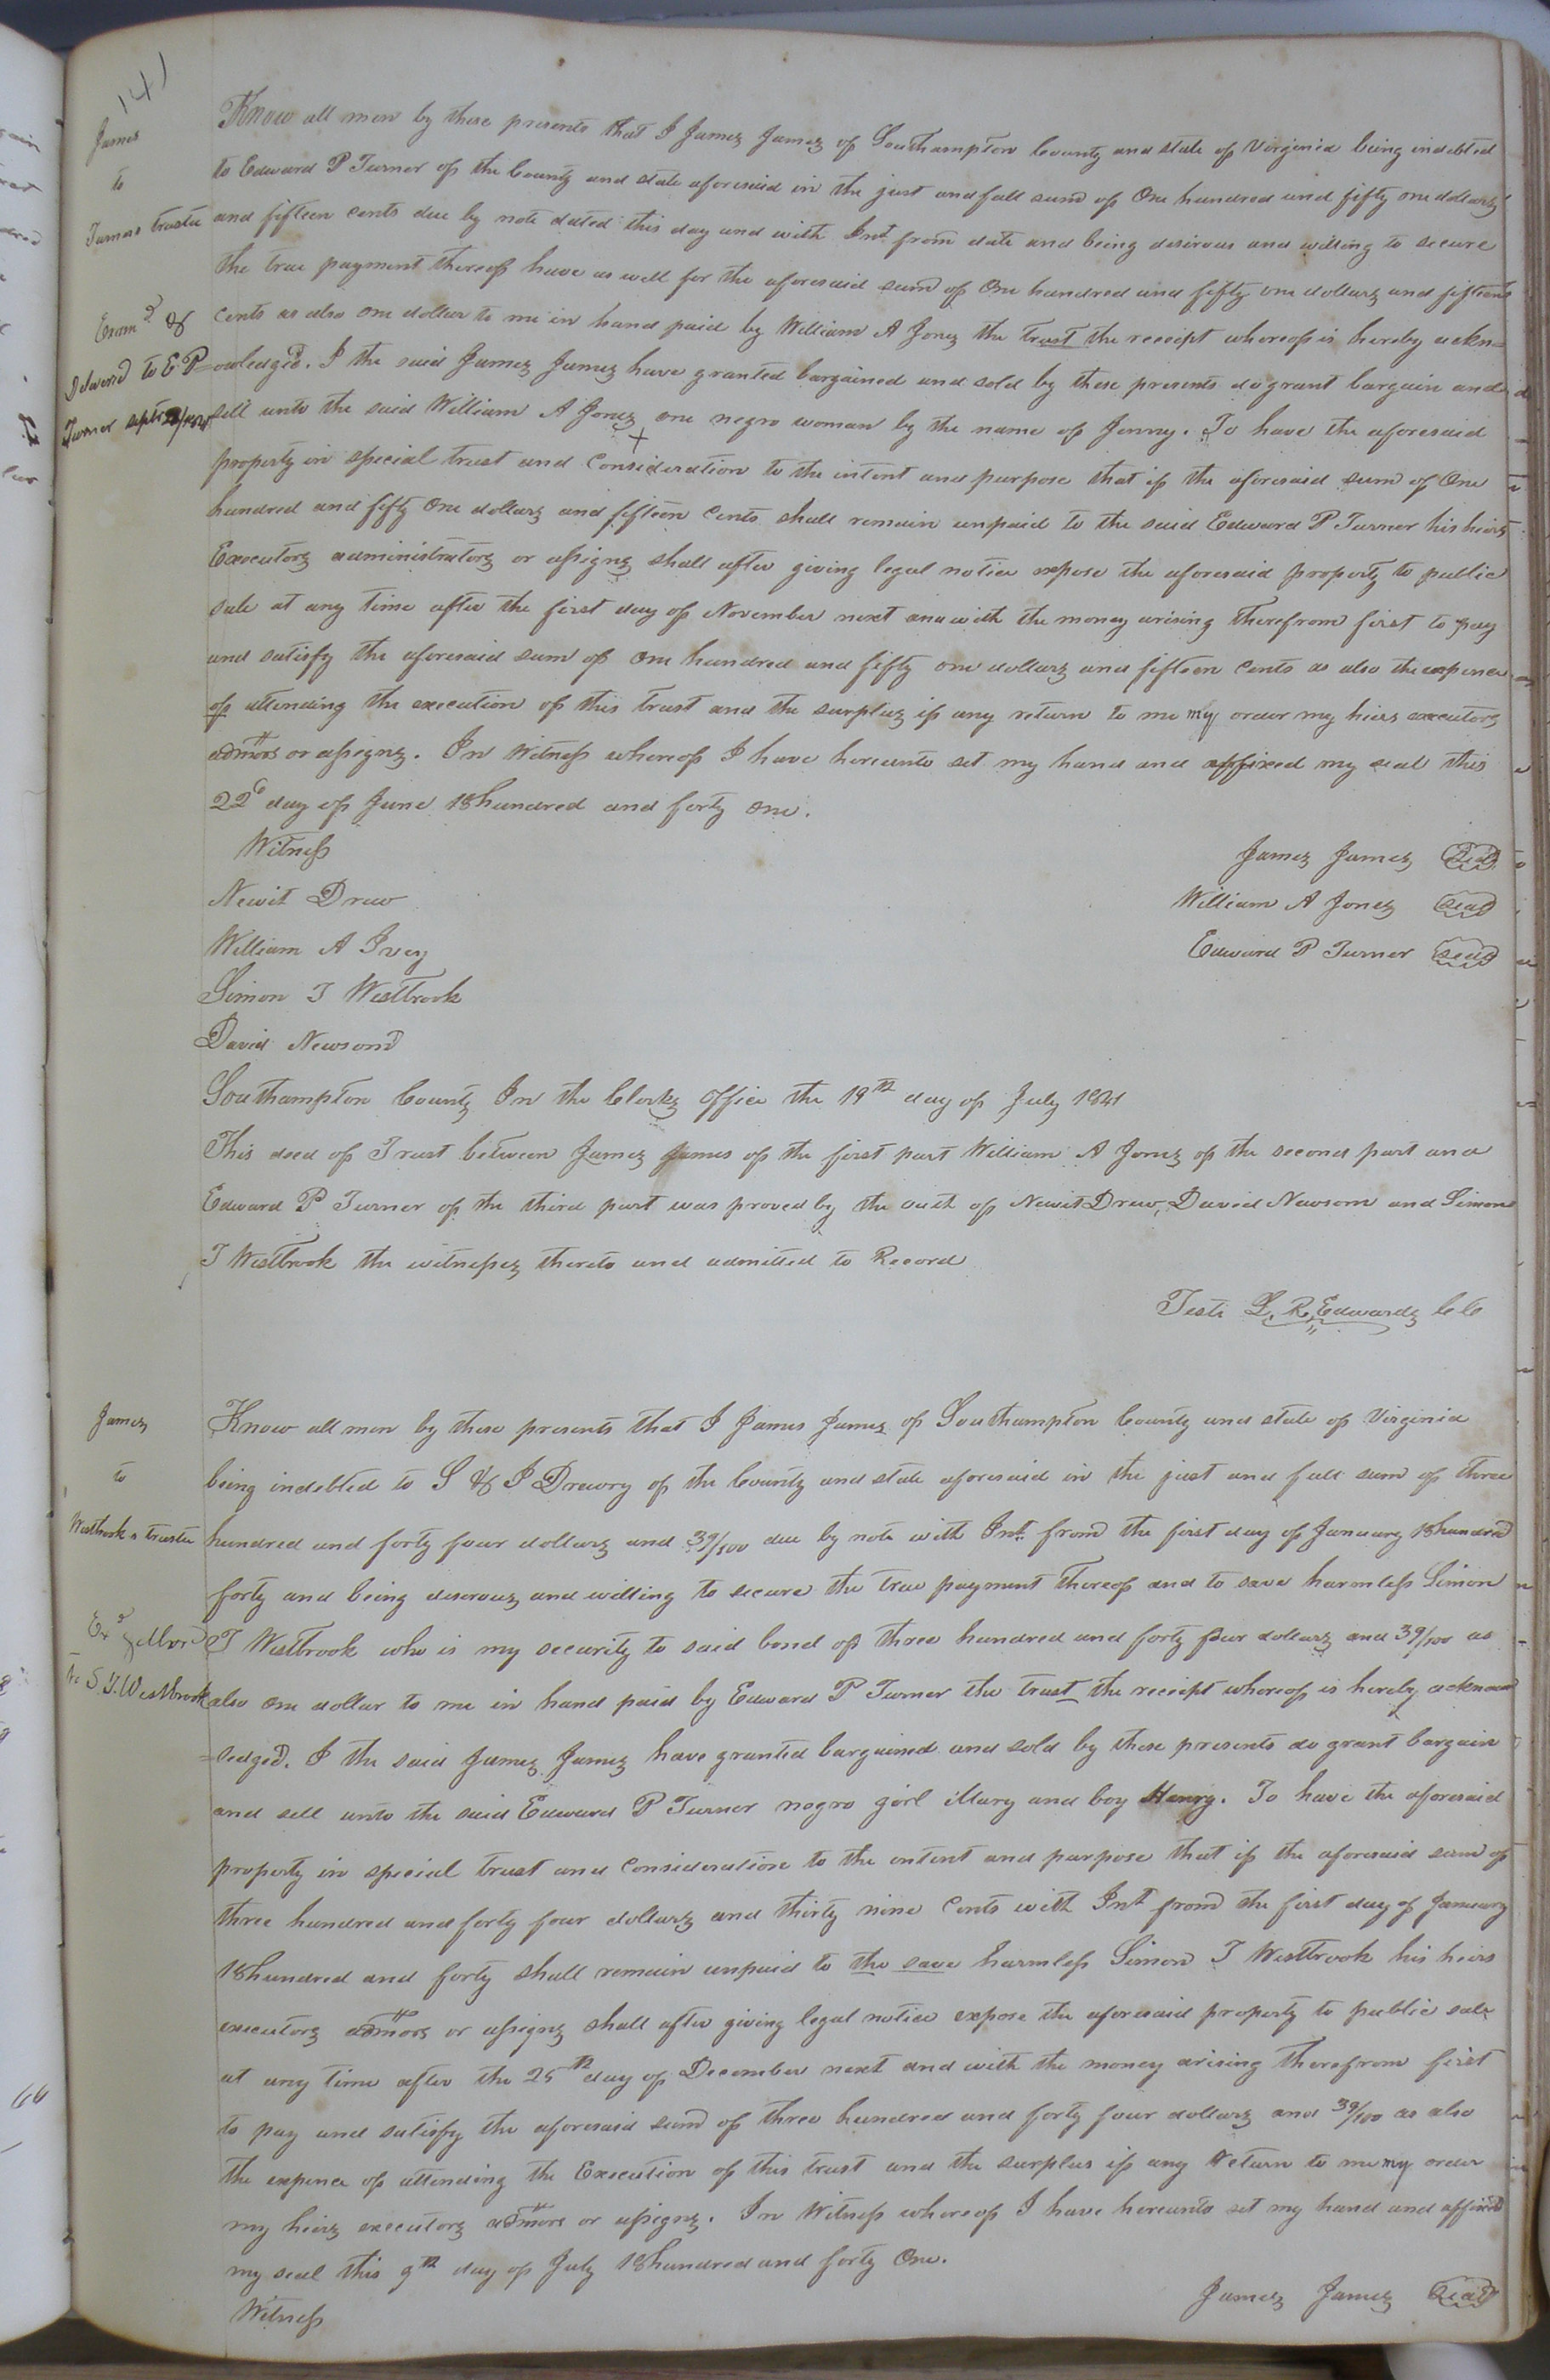 141
James
to
Turners trustee
Know all men by these presents that I James James of Southampton County and state of Virginia being indebted
to Edward P Turner of the County and state aforesaid in the just and full sum of One hundred and fifty one dollars
and fifteen cents due by note dated this day and with Int from date and being desirous and willing to secure
the true payment thereof have as well for the aforesaid sum of One hundred and fifty one dollars and fifteen
Cents as also one dollar to me in hand paid by William A Jones the trust the receipt whereof is hereby ackn=
=owledged. I the said James James have granted bargained and sold by these presents do grant bargain and
sell unto the said William A Jones one negro woman by the name of Jenny. To have the aforesaid
property in special trust and Consideration to the intent and purpose that if the aforesaid sum of One
hundred and fifty One dollars and fifteen Cents shall remain unpaid to the said Edward P Turner his heirs
Executors administrators or assigns shall after giving legal notice expose the aforesaid property to public
sale at any time after the first day of November next and with the money arising therefrom first to pay
and satisfy the aforesaid sum of One hundred and fifty one dollars and fifteen Cents as also the expence
of attending the execution of this trust and the surplus if any return to me my order my heirs executors
admors or assigns. In Witness whereof I have hereunto set my hand and affixed my seal this
22d day of June 18hundred and forty one.
Examd &
Delivered to E P
Turner Sept
Witness
James James Seal
Newit Drew
William A Jones Seal
William A Ivey
Edward P Turner Seal
Simon T Westbrook
David Newsom
Southampton County In the Clerks Office the 19th day of July 1841
This deed of Trust between James James of the first part William A Jones of the second part and
Edward P Turner of the third part was proved by the oath of Newit Drew, David Newsom and Simon
T Westbrook the witnesses thereto and admitted to Record
Teste L. R. Edwards CC
James
to
Westbrooks trustee
Know all men by these presents that I James James of Southampton County and state of Virginia
being indebted to S & J Drewry of the County and state aforesaid in the just and full sum of three
hundred and forty four dollars and 39/100 due by note with Int. from the first day of January 18hundred
forty and being desirous and willing to secure the true payment thereof and to save harmless Simon
T Westbrook who is my security to said bond of three hundred and forty four dollars and 39/100 as
also one dollar to me in hand paid by Edward P Turner the trust the receipt whereof is hereby acknow
=ledged. I the said James James have granted bargained and sold by these presents do grant bargain
and sell unto the said Edward P Turner negro girl Mary and boy Henry. To have the aforesaid
property in special trust and Consideration to the intent and purpose that if the aforesaid sum of
three hundred and forty four dollars and thirty nine Cents with Int from the first day of January
18hundred and forty shall remain unpaid to the save harmless Simon T Westbrook his heirs
executors admors or assigns shall after giving legal notice expose the aforesaid property to public sale
at any time after the 25th day of December next and with the money arising therefrom first
to pay and satisfy the aforesaid sum of three hundred and forty four dollars and 39/100 as also
the expence of attending the Execution of this trust and the surplus if any return to me my order
my heirs executors admors or assigns. In Witness whereof I have hereunto set my hand and affixed
my seal this 9th day of July 18hundred and forty One.
Exd & delivd
to S. T. Westbrook
James James Seal
Witness